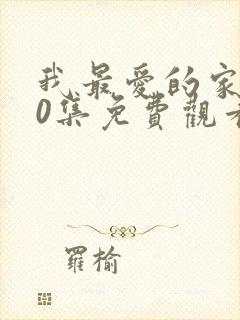 我最愛的家
0集免費觀看
羅榆